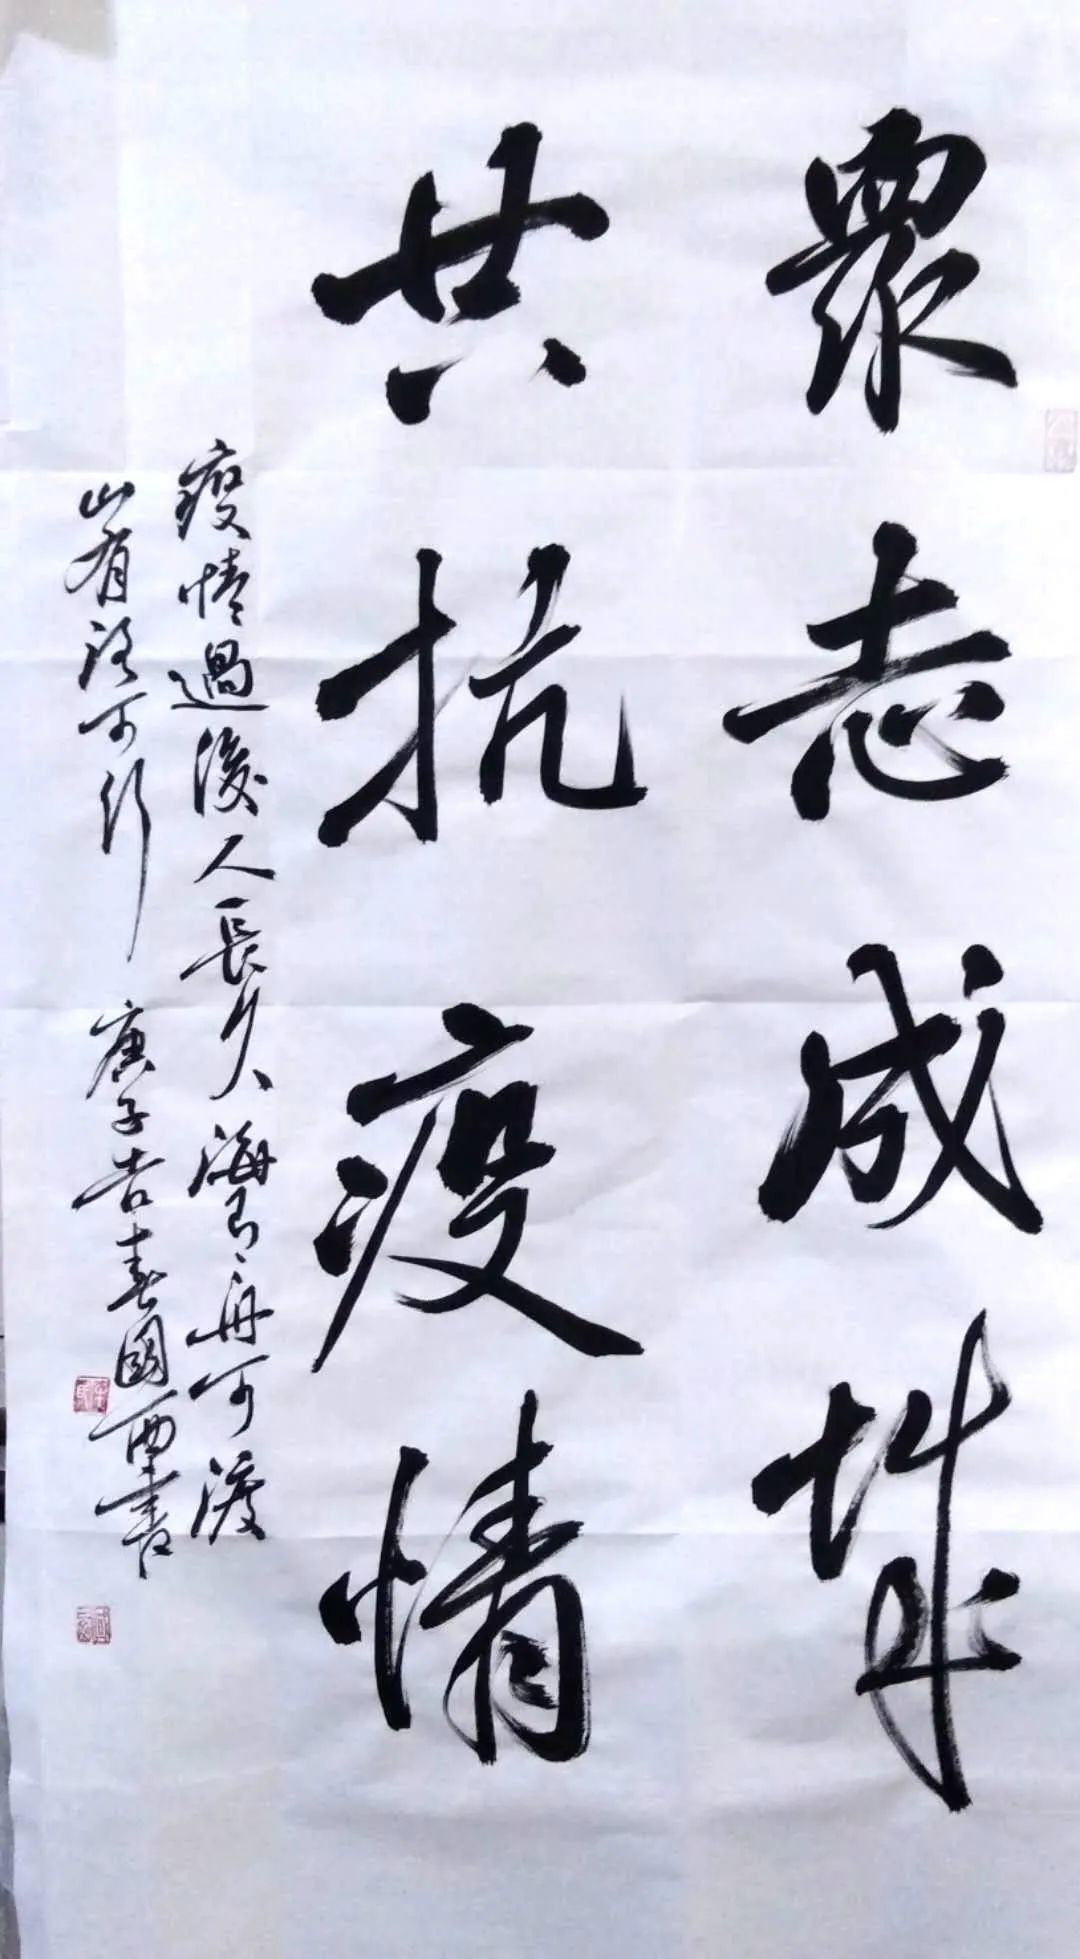 眾志成城
共抗疫情
疫情過後人長久海有舟可渡
山有路可行 庚子吉春國西書